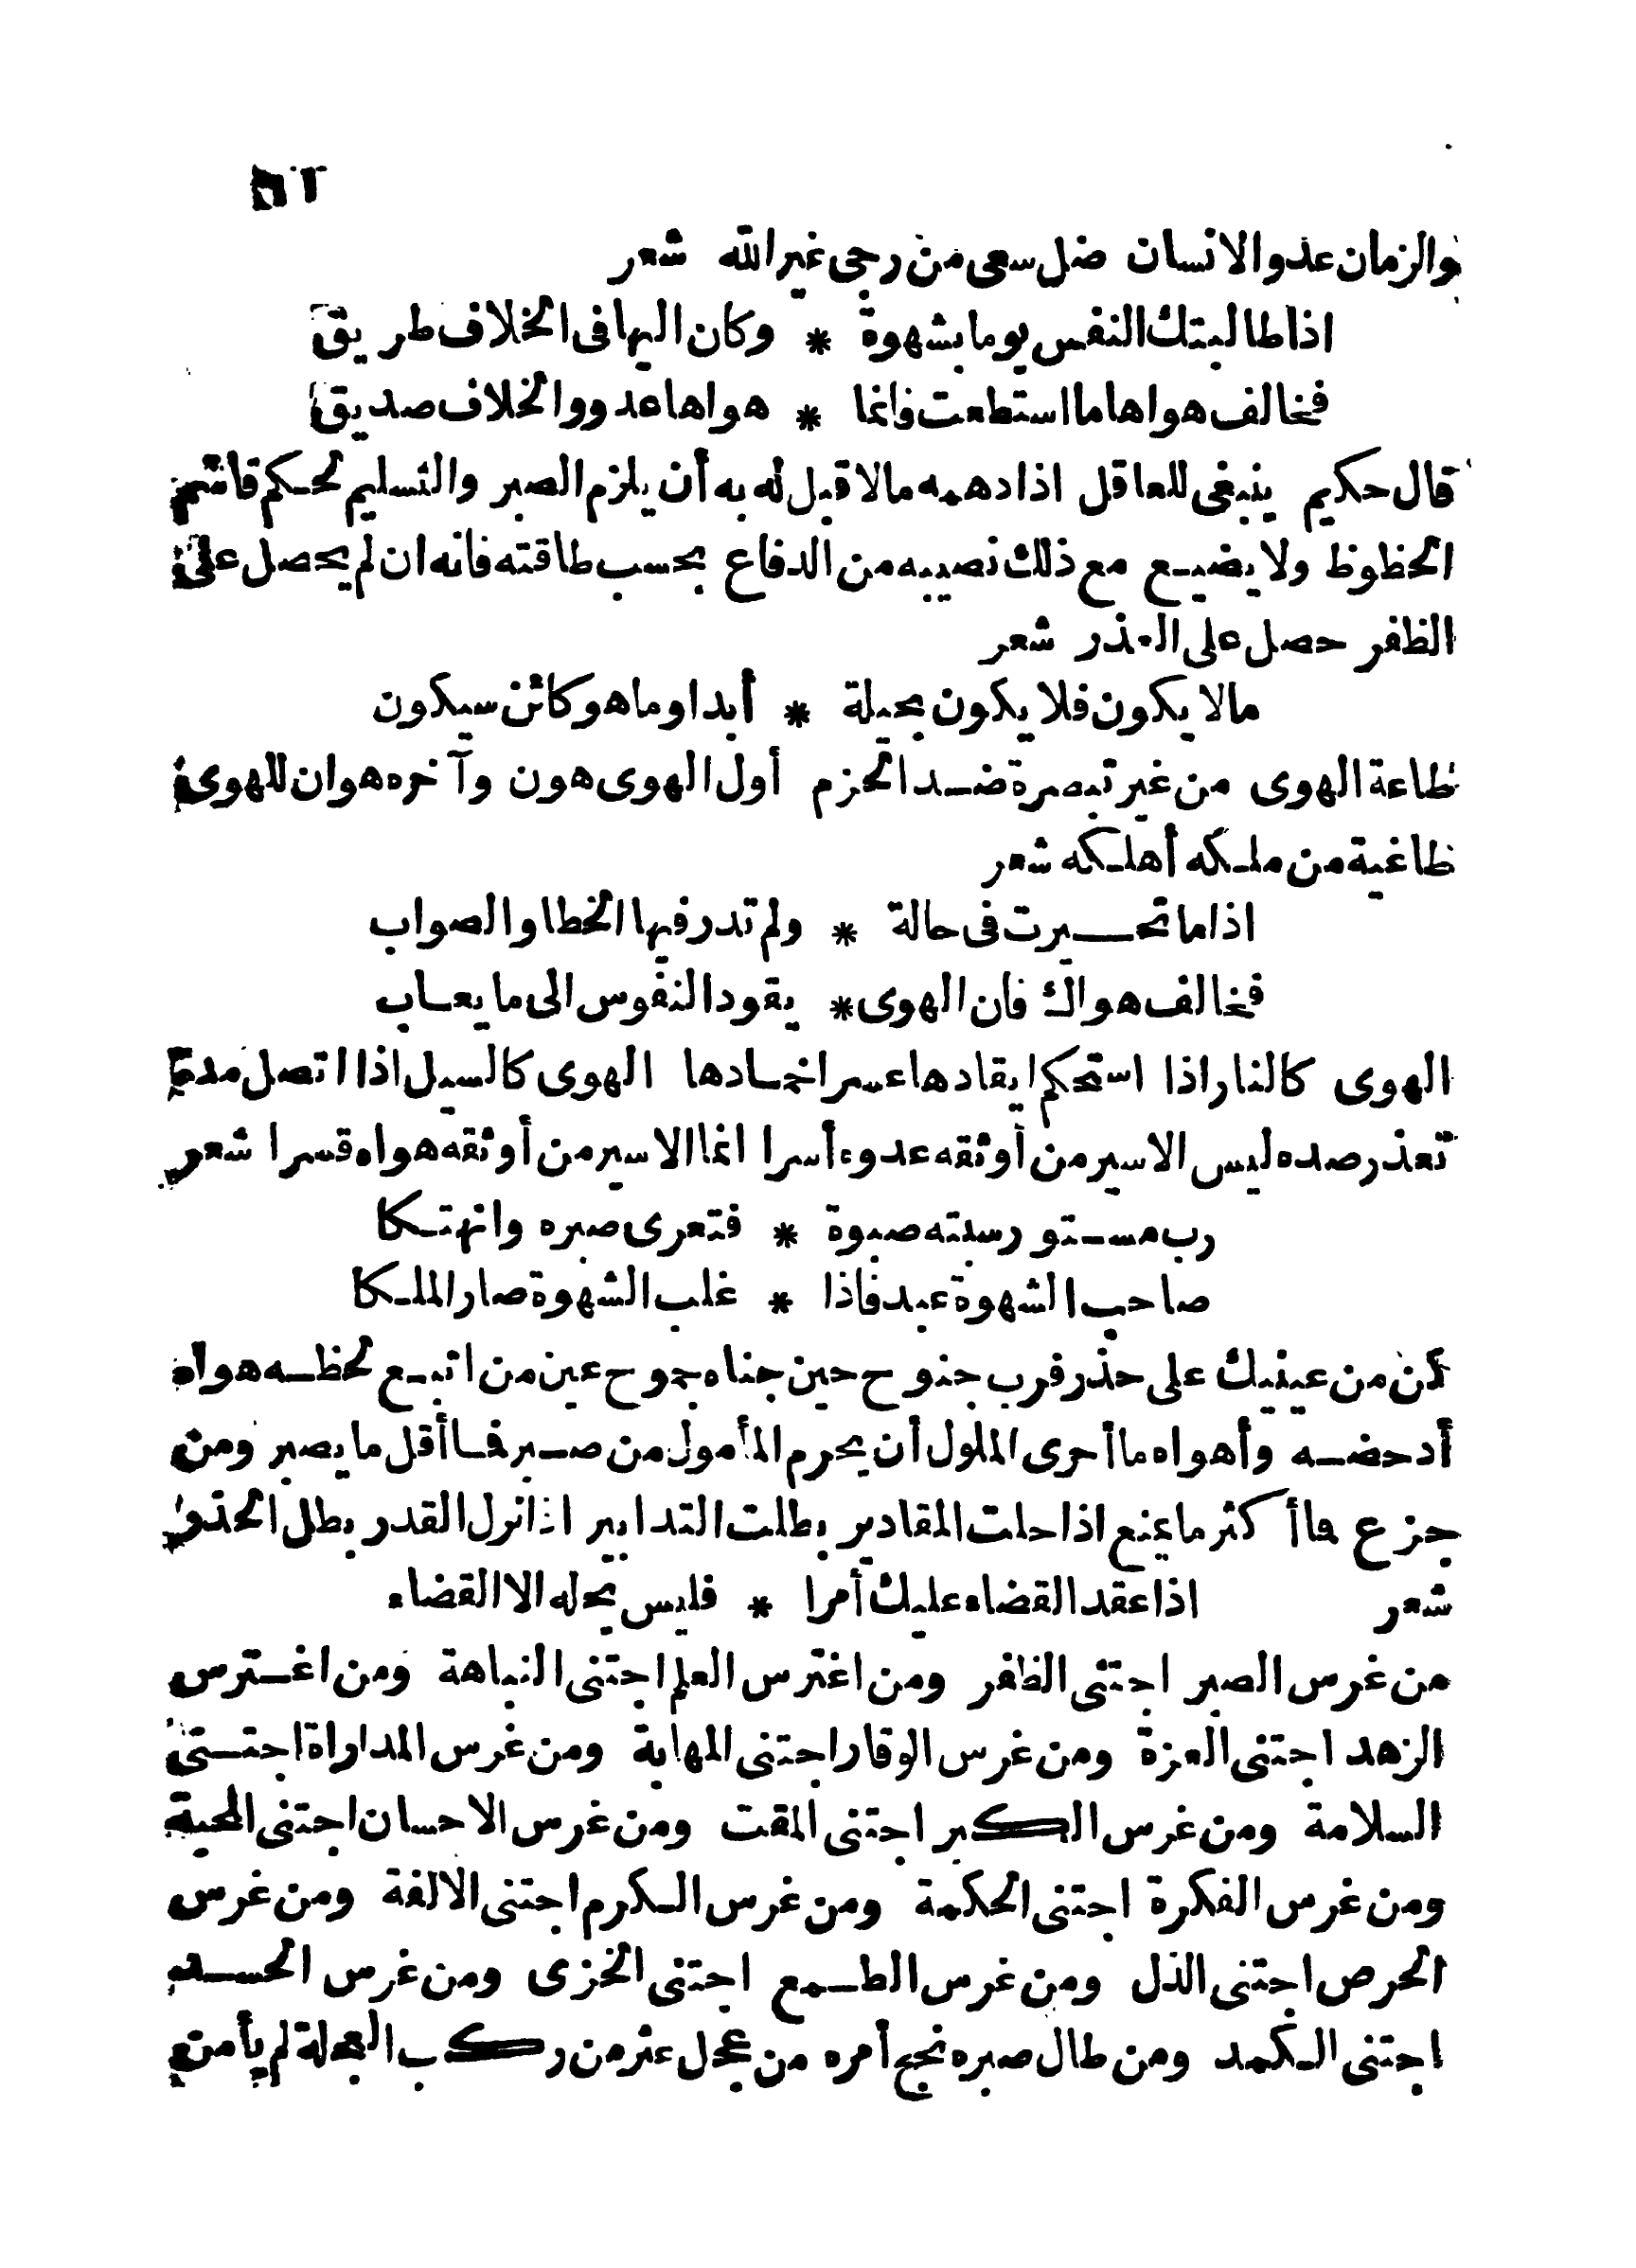 والزمان عدو الانسان ضل سعى من رجى غير الله شعر
اذا طالبتك النفس يوما بشهوة * وكان اليها فى الخلاف طريق
فخالف هواها ما استطعت فانما * هواها عدو والخلاف صديق
قال حكيم ينبغى للعاقل اذا دهمه مالا قبل له به أن يلزم الصبر والتسليم لحكم قاسم
الحظوظ ولا يضيع مع ذلك نصيبه من الدفاع بحسب طاقته فانه ان لم يحصل على
الظفر حصل على العذر شعر
مالا يكون فلا يكون بحيلة * أبدا وما هو كائن سيكون
طاعة الهوى من غير تبصرة ضد الحزم أول الهوى هون وآخره هوان للهوى
طاغية من ملكه أهلكه شعر
اذا ما تحيرت فى حالة * ولم تدر فيها الخطا والصواب
فخالف هواك فان الهوى * يقود النفوس الى ما يعاب
الهوى كالنار اذا استحكم ايقادها عسر اخمادها الهوى كالسيل اذا اتصل مده
تعذر صده ليس الاسير من أوثقه عدوه أسرا انما الاسير من أوثقه هواه قسرا شعر
رب مستور سبته صبوة * فتعرى صبره وانهتكا
صاحب الشهوة عبد فاذا * غلب الشهوة صار الملكا
كن من عينيك على حذر فرب جنوح حين جناه جموح عين من اتبع لحظه هواه
أدحضه وأهواه ما أحرى الملول أن يحرم المأمول من صبر فما أقل ما يصبر ومن
جزع فما أكثر ما يمنع اذا حلت المقادير بطلت التدابير اذا نزل القدر بطل الحذر
شعر اذا عقد القضاء عليك أمرا * فليس يحله الا القضاء
من غرس الصبر اجتنى الظفر ومن اغترس العلم اجتنى النباهة ومن اغترس
الزهد اجتنى العزة ومن غرس الوقار اجتنى المهابة ومن غرس المداراة اجتنى
السلامة ومن غرس الكبر اجتنى المقت ومن غرس الاحسان اجتنى المحبة
ومن غرس الفكرة اجتنى الحكمة ومن غرس الكرم اجتنى الالفة ومن غرس
الحرص اجتنى الذل ومن غرس الطمع اجتنى الخزى ومن غرس الحسد
اجتنى الكمد ومن طال صبره نجح أمره من عجل عثر من ركب العجلة لم يأمن